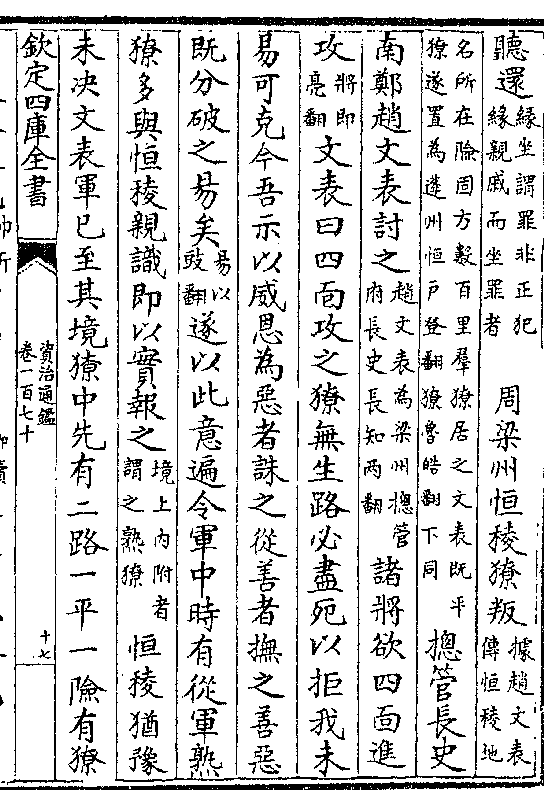 聽還緣坐謂罪非正犯緣親戚而坐罪者　周梁州恒稜獠叛據趙文表傳恒稜地
名所在險固方數百里羣獠居之文表既平獠遂置為蓬州恒戶登翻獠魯皓翻下同　摠管長史
南鄭趙文表討之趙文表為梁州摠管府長史長知兩翻　諸將欲四面進
攻將即亮翻文表曰四面攻之獠無生路必盡死以拒我未
易可克今吾示以威恩為惡者誅之從善者撫之善惡
既分破之易矣易以豉翻遂以此意遍令軍中時有從軍熟
獠多與恒稜親識即以實報之境上內附者謂之熟獠　恒稜猶豫
未決文表軍已至其境獠中先有二路一平一險有獠
欽定四庫全書
資治通鑑
卷一百七十
十七